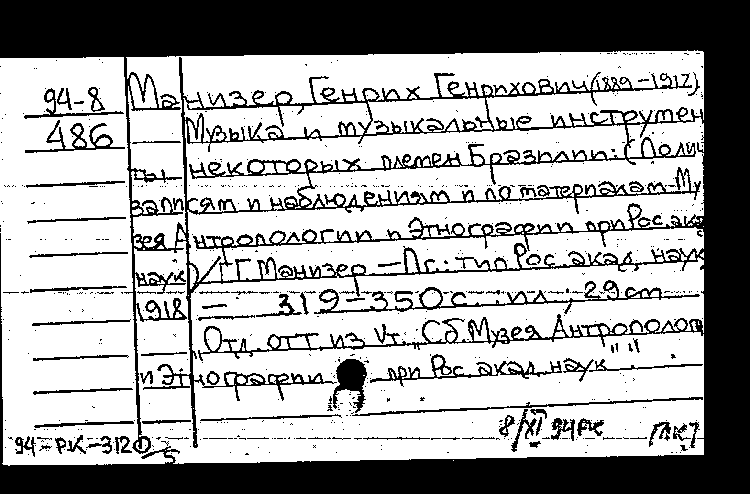 94-8 Манизер, Генрих Генрихович (1889-1917)
486 Музыка и музыкальные инструмен
ты некоторых племен Бразилии: (По личн
записям и наблюдениям и по материалам Му
зея Антропологии и Этнографии при Рос. акад
наук) / Г.Г. Манизер — Пг.: тип. Рос. акад. наук,
1918 — 319-350 с. : ил ; 29 cm
"Отд. отт. из V т. "Сб. Музея Антрополог
и Этнографии при Рос. акад. наук" ".
8/XI 94 РК
94-РК-3120/5